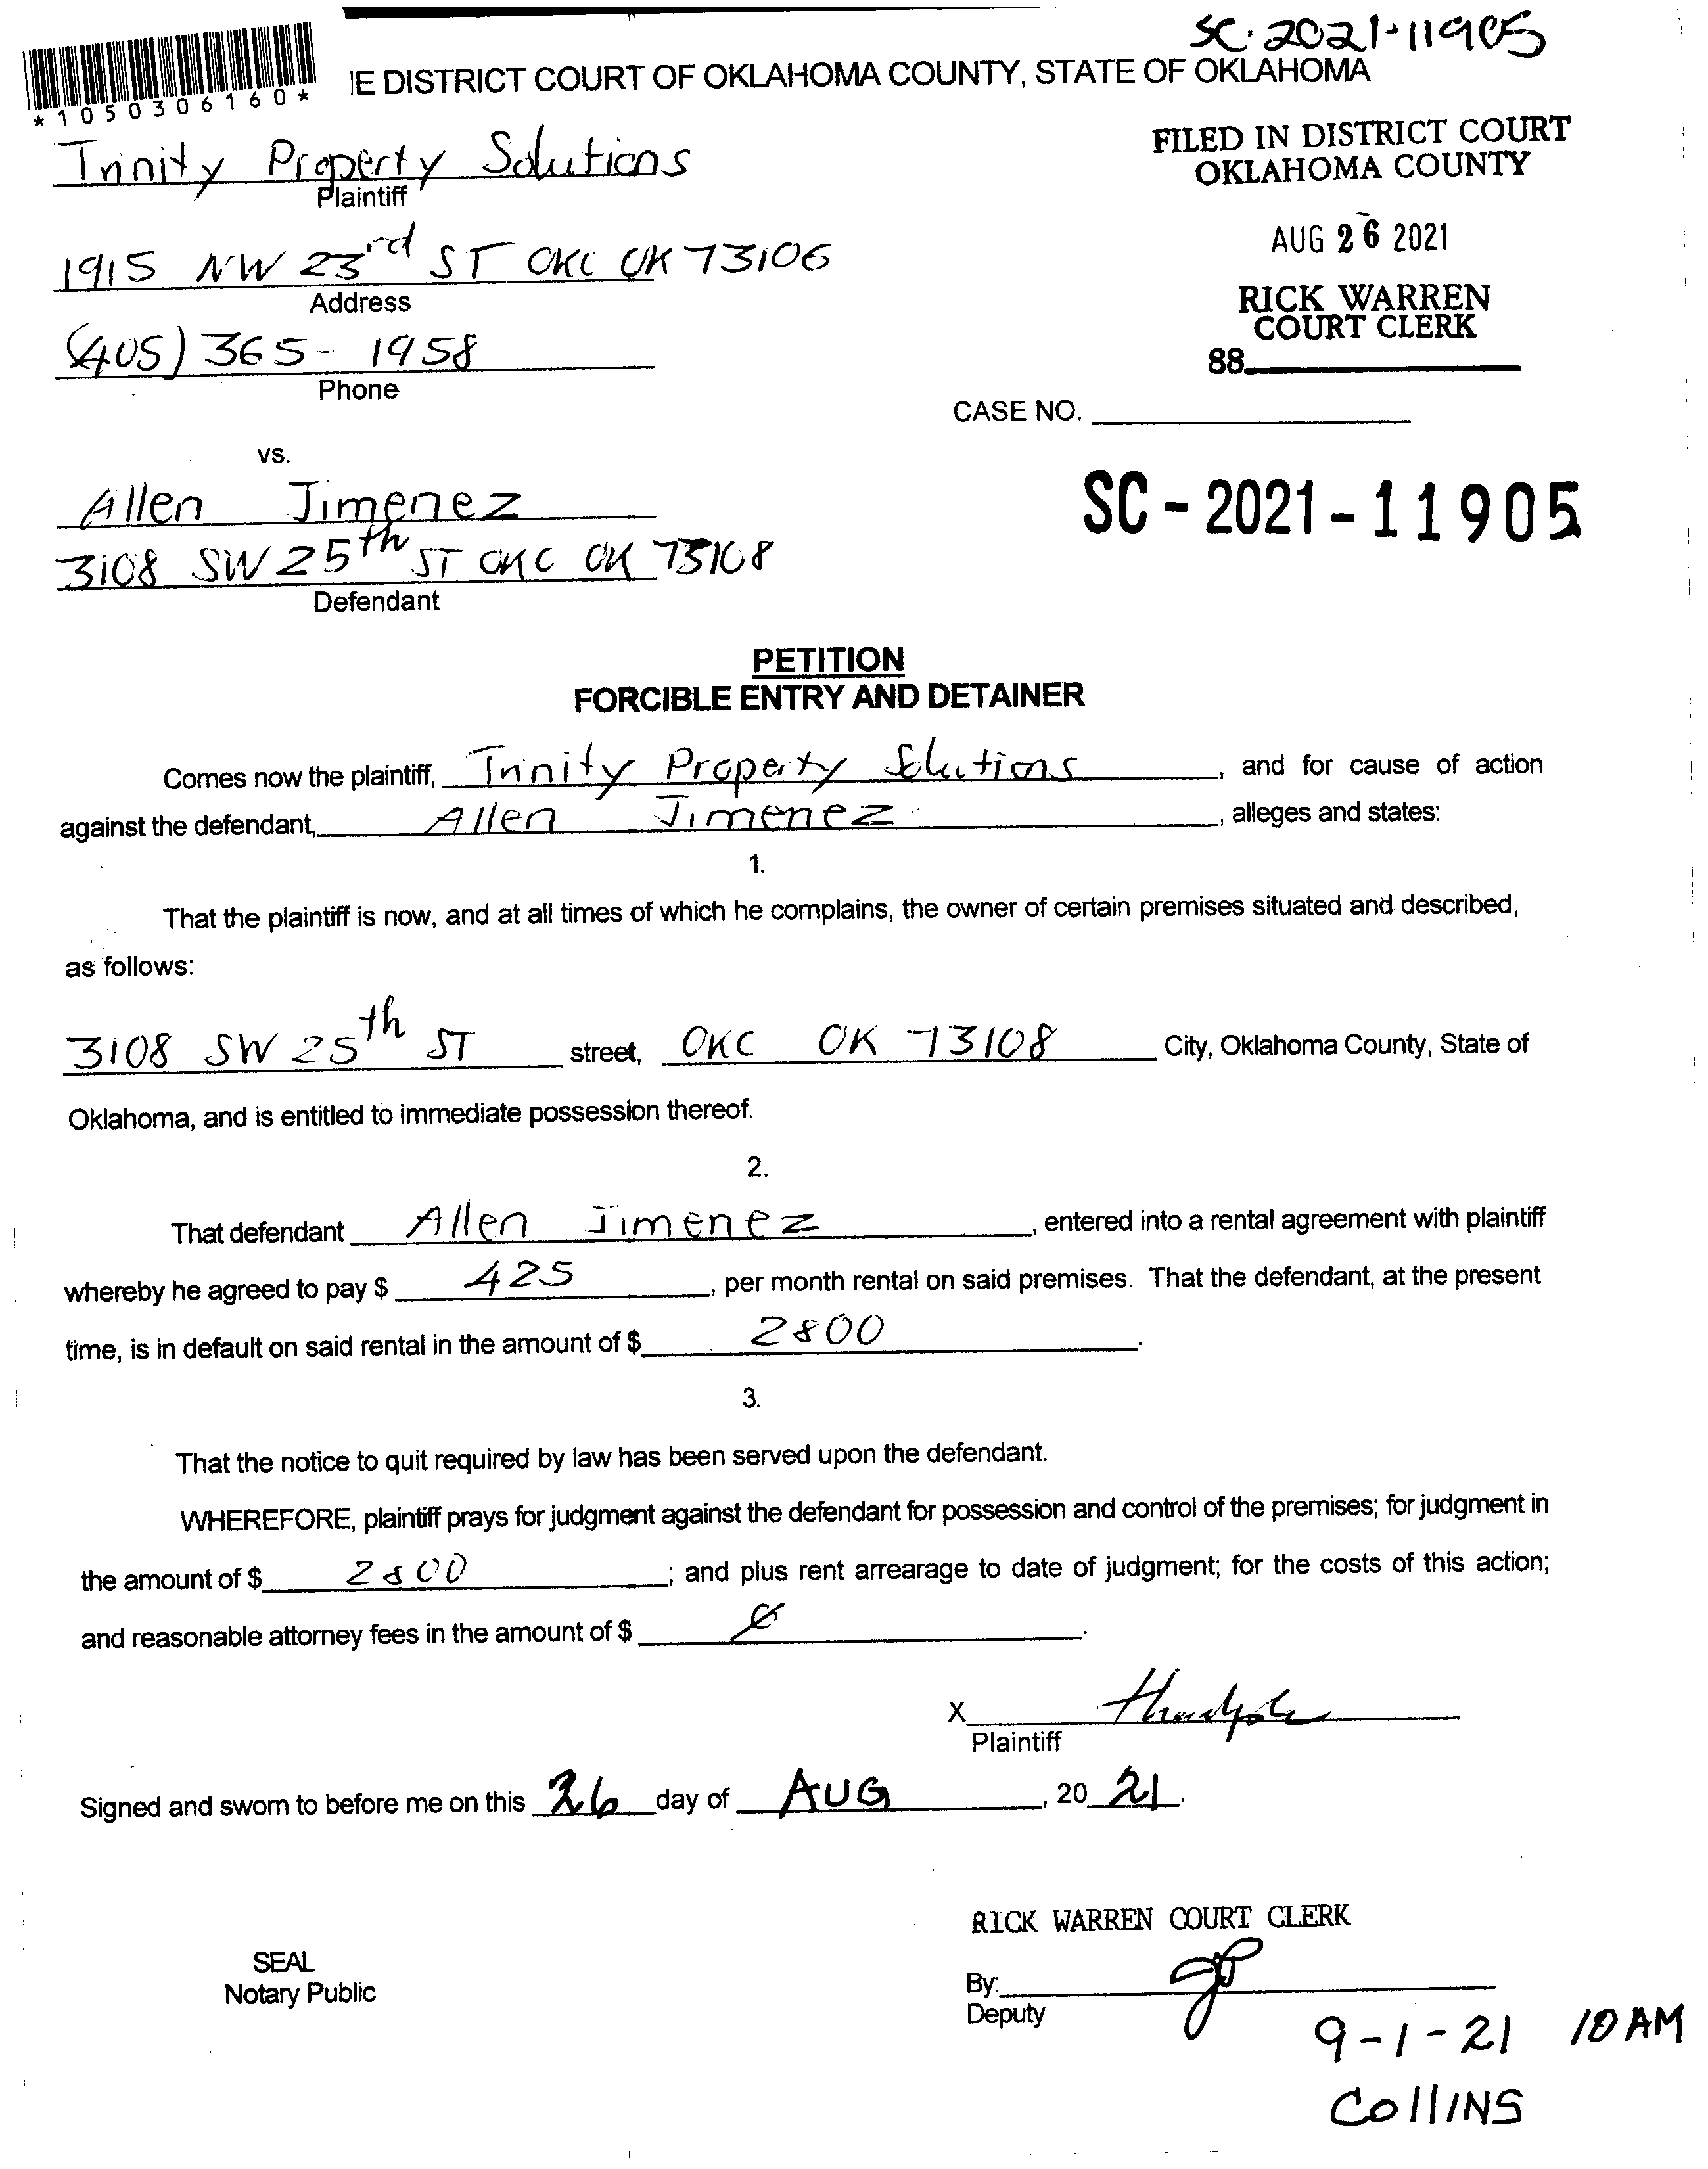 SC-2021-11905
*1050306160*
IE DISTRICT COURT OF OKLAHOMA COUNTY, STATE OF OKLAHOMA
Trinity Property Solutions
Plaintiff
FILED IN DISTRICT COURT
OKLAHOMA COUNTY
1915 NW 23rd ST OKC OK 73106
Address
AUG 26 2021
RICK WARREN
COURT CLERK
(405) 365-1958
Phone
88
CASE NO.
vs.
Allen Jimenez
SC-2021-11905
3108 SW 25th ST OKC OK 73108
Defendant
PETITION
FORCIBLE ENTRY AND DETAINER
Comes now the plaintiff, Trinity Property Solutions, and for cause of action
against the defendant, Allen Jimenez, alleges and states:
1.
That the plaintiff is now, and at all times of which he complains, the owner of certain premises situated and described,
as follows:
3108 SW 25th ST street, OKC OK 73108 City, Oklahoma County, State of
Oklahoma, and is entitled to immediate possession thereof.
2.
That defendant Allen Jimenez, entered into a rental agreement with plaintiff
whereby he agreed to pay $ 425, per month rental on said premises. That the defendant, at the present
time, is in default on said rental in the amount of $ 2800.
3.
That the notice to quit required by law has been served upon the defendant.
WHEREFORE, plaintiff prays for judgment against the defendant for possession and control of the premises; for judgment in
the amount of $ 2800; and plus rent arrearage to date of judgment; for the costs of this action;
and reasonable attorney fees in the amount of $ Ø.
X
Plaintiff
Signed and sworn to before me on this 26 day of AUG, 20 21.
RICK WARREN COURT CLERK
SEAL
Notary Public
By:
Deputy
9-1-21 10 AM
Collins